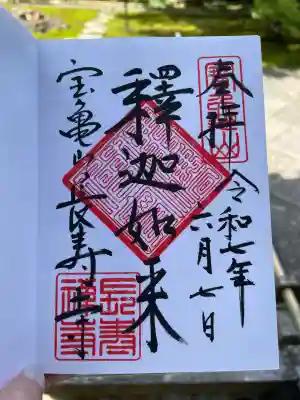 奉拝
令和七年
六月七日
釋迦如来
宝亀山長寿寺
長寿禅寺